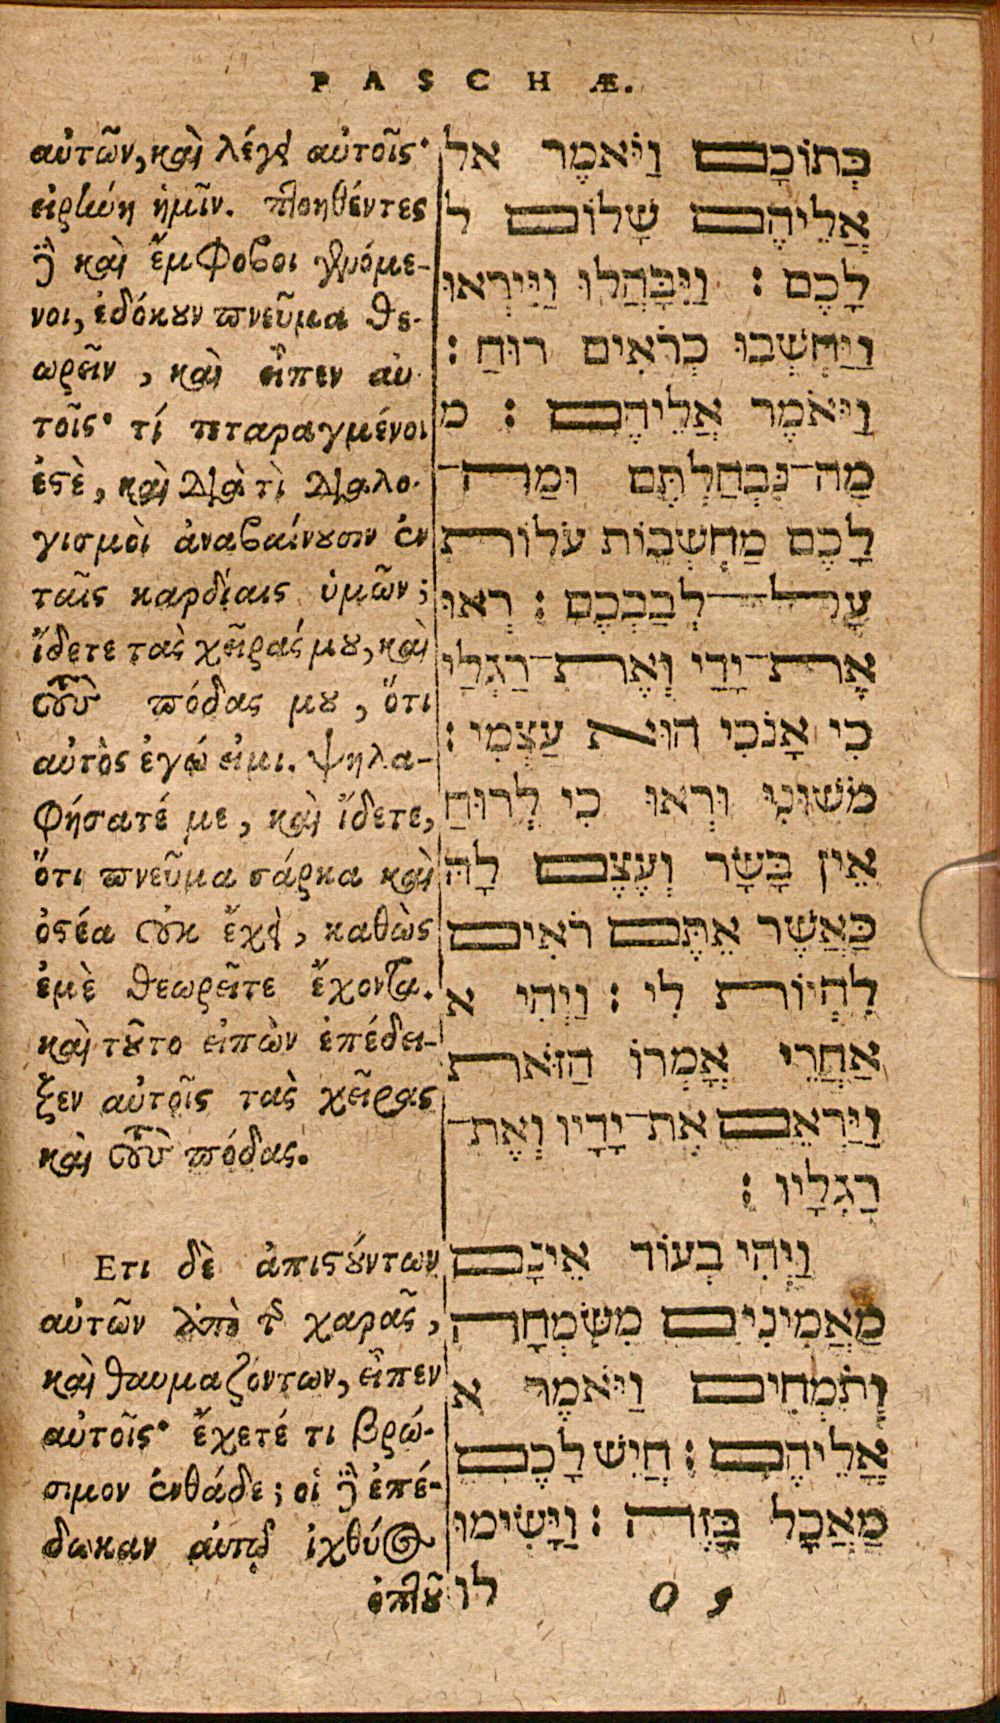 PASCHÆ.
αὐτῶν, καὶ λέγει αὐτοῖς·
εἰρήνη ἡμῖν. πτοηθέντες
δὲ καὶ ἔμφοβοι γενόμε-
νοι, ἐδόκουν πνεῦμα θε-
ωρεῖν, καὶ εἶπεν αὐ-
τοῖς· τί τεταραγμένοι
ἐστὲ, καὶ διὰ τὶ διαλο-
γισμοὶ ἀναβαίνουσιν ἐν
ταῖς καρδίαις ὑμῶν;
ἴδετε τὰς χεῖράς μου, καὶ
τοὺς πόδας μου, ὅτι
αὐτὸς ἐγώ εἰμι. ψηλα-
φήσατέ με, καὶ ἴδετε,
ὅτι πνεῦμα σάρκα καὶ
ὀστέα οὐκ ἔχει, καθὼς
ἐμὲ θεωρεῖτε ἔχοντα.
καὶ τοῦτο εἰπὼν ἐπέδει-
ξεν αὐτοῖς τὰς χεῖρας
καὶ τοὺς πόδας.
Ετι δὲ ἀπιστούντων
αὐτῶν ἀπὸ τῆς χαρᾶς,
καὶ θαυμαζόντων, εἶπεν
αὐτοῖς· ἔχετέ τι βρώ-
σιμον ἐνθάδε; οἱ δὲ ἐπέ-
δωκαν αὐτῷ ἰχθύος
ὀπτοῦ
בְּתוֹכָם וַיֹּאמֶר אל
אֲלֵיהֶם שָׁלוֹם ל
לָכֶם : וַיִּבָּהֲלוּ וַיִּירְאוּ
וַיַּחְשְׁבוּ כְרֹאִים רוּחַ :
וַיֹּאמֶר אֲלֵיהֶם : מ
מַה־נִּבְחַלְתֶּם וּמַה־
לָכֶם מַחְשְׁבוֹת עֹלוֹת
עַל־לְבַבְכֶם : רְאוּ
אֶת־יָדַי וְאֶת־רַגְלַי
כִּי אָנֹכִי הוּא עַצְמִי :
מֹשׁוּנִי וּרְאוּ כִּי לְרוּחַ
אֵין בָּשָׂר וְעֶצֶם לָהּ
כַּאֲשֶׁר אַתֶּם רֹאִים
לִהְיוֹת לִי : וַיְהִי א
אַחֲרֵי אָמְרוֹ הַזֹּאת
וַיַּרְאֵם אֶת־יָדָיו וְאֶת־
רַגְלָיו :
וַיְהִי בְעוֹד אֵינָם
מַאֲמִינִים מִשִּׂמְחָה
וְתֹמְחִים וַיֹּאמֶר א
אֲלֵיהֶם : הֲיֵשׁ לָכֶם
מַאֲכָל בָּזֶה : וַיָּשִׂימוּ
לו
O 5